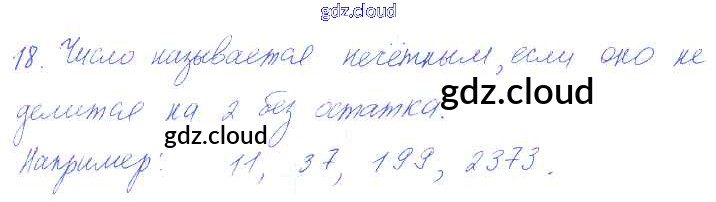 gdz.cloud
18. Число называется нечётным, если оно не
делится на 2 без остатка.
gdz.cloud
gdz.cloud
Например: 11, 37, 199, 2373.